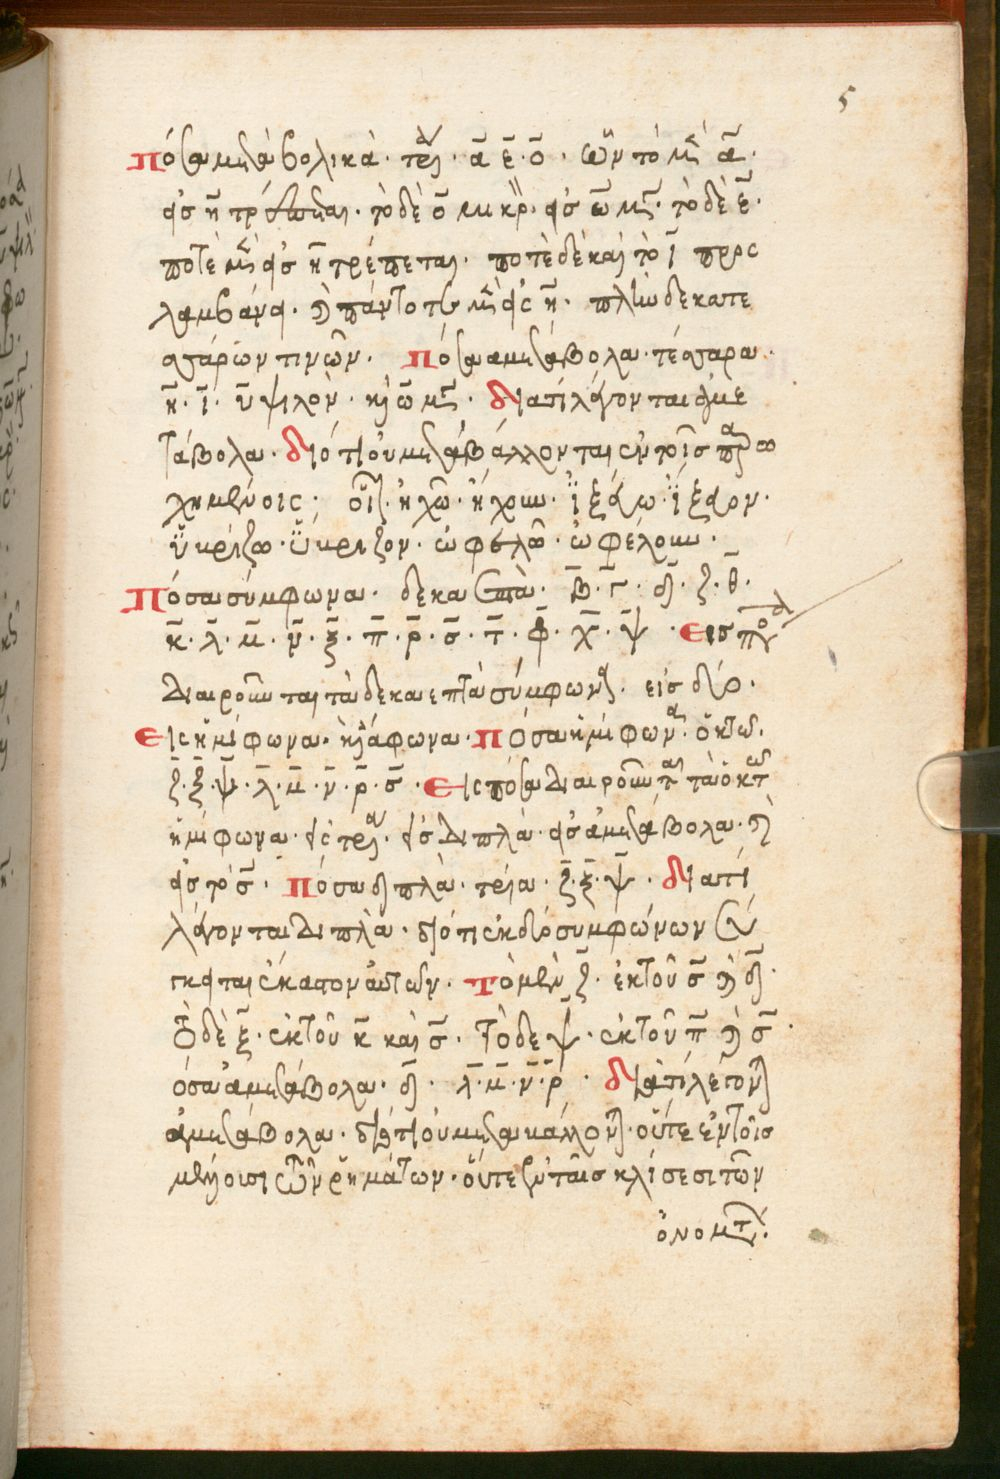 5
Πόσα μεταβολικὰ· τρία· α ε· ο· ὧν τὸ μὲν α·
εἰς η τρέπεται· τὸ δὲ ο μικρὸν· εἰς ω μέγα· τὸ δὲ ε·
ποτὲ μὲν εἰς η τρέπεται· ποτὲ δὲ καὶ τὸ ι προς
λαμβάνει· καὶ πάντοτε μὲν εἰς η· πλὴν δεκατε
σσάρων τινῶν· Πόσα ἀμετάβολα· τέσσαρα·
η· ι· υ ψιλὸν· καὶ ω μέγα· διατί λέγονται ἀμε
τάβολα· διότι οὐ μεταβάλλονται ἐν τοῖς παρω
χημένοις· οἷον· ἠχῶ· ἤχουν· ἰξεύω· ἴξευον·
ὑβρίζω· ὕβριζον· ὠφελῶ· ὠφέλουν·
Πόσα σύμφωνα· δεκαεπτὰ· β· γ· δ· ζ· θ·
κ· λ· μ· ν· ξ· π· ρ· σ· τ· φ· χ· ψ· Εἰς πόσα
διαιροῦνται τὰ δεκαεπτὰ σύμφωνα· εἰς δύο·
Εἰς ἡμίφωνα· καὶ ἄφωνα· Πόσα ἡμίφωνα· ὀκτώ·
ζ· ξ· ψ· λ· μ· ν· ρ· σ· Εἰς πόσα διαιροῦνται τὰ ὀκτὼ
ἡμίφωνα· εἰς τρία· εἰς διπλὰ· εἰς ἀμετάβολα· καὶ
εἰς τὸ σ· Πόσα διπλὰ· τρία· ζ· ξ· ψ· διατί
λέγονται διπλὰ· διότι ἐκ δύο συμφώνων σύ
γκειται ἕκαστον αὐτῶν· Τὸ μὲν ζ· ἐκ τοῦ σ καὶ δ·
Τὸ δὲ ξ· ἐκ τοῦ κ καὶ σ· Τὸ δε ψ· ἐκ τοῦ π καὶ σ·
όσα ἀμετάβολα· δ· λ· μ· ν· ρ· διατί λέγονται
ἀμετάβολα· διότι οὐ μεταβάλλονται· οὔτε ἐν τοῖς
μέλλουσι τῶν ῥημάτων· οὔτε ἐν ταῖς κλίσεσι τῶν
ὀνομάτων·